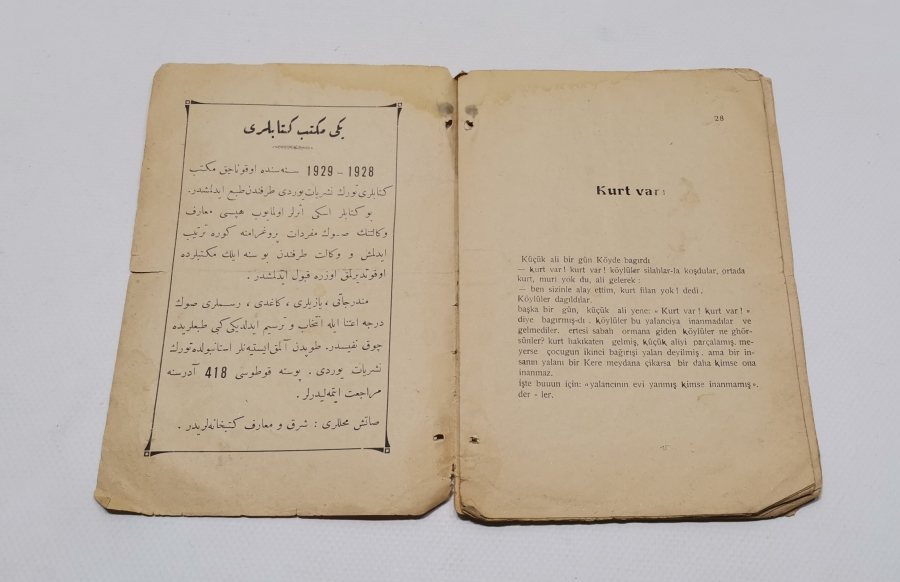 یكی مكتب كتابلری
1928 – 1929 سنه‌سنده اوقوناجق مكتب
كتابلری تورك نشریات یوردی طرفندن طبع ایدلمشدر.
بو كتابلر اسكی اثرلر اولمایوب هپسی معارف
وكالتنك صوك مفردات پروغرامنه كوره ترتیب
ایدلمش و وكالت طرفندن بو سنه ایلك مكتبلرده
اوقوتدیرلمق اوزره قبول ایدلمشدر.
مندرجاتی ، یازیلری ، كاغدی ، رسملری صوك
درجه اعتنا ایله انتخاب و ترسیم ایدلدیكی كبی طبعلریده
چوق نفیسدر. طوپدن آلمق ایستیه‌نلر استانبولده تورك
نشریات یوردی . پوسته قوطوسی 418 آدرسنه
مراجعت ایتمه‌لیدرلر .
صاتش محللری : شرق و معارف كتبخانه‌لریدر .
28
Kurt var!
Küçük ali bir gün Köyde bagırdı
— kurt var! kurt var! köylüler silahlar-la koşdular, ortada
kurt, murt yok du, ali gelerek :
— ben sizinle alay ettim, kurt filan yok! dedi.
Köylüler dagıldılar.
başka bir gün, küçük ali yene: « Kurt var! kurt var! »
diye bagırmış-dı. köylüler bu yalancıya inanmadılar ve
gelmediler. ertesi sabah ormana giden köylüler ne ghör-
sünler? kurt hakikaten gelmiş, küçük aliyi parçalamış. me-
yerse çocugun ikinci bağırişı yalan deyilmiş, ama bir in-
sanın yalanı bir Kere meydana çikarsa bir daha kimse ona
inanmaz.
işte bunun için: «yalancının evi yanmış kimse inanmamış»,
der - ler.